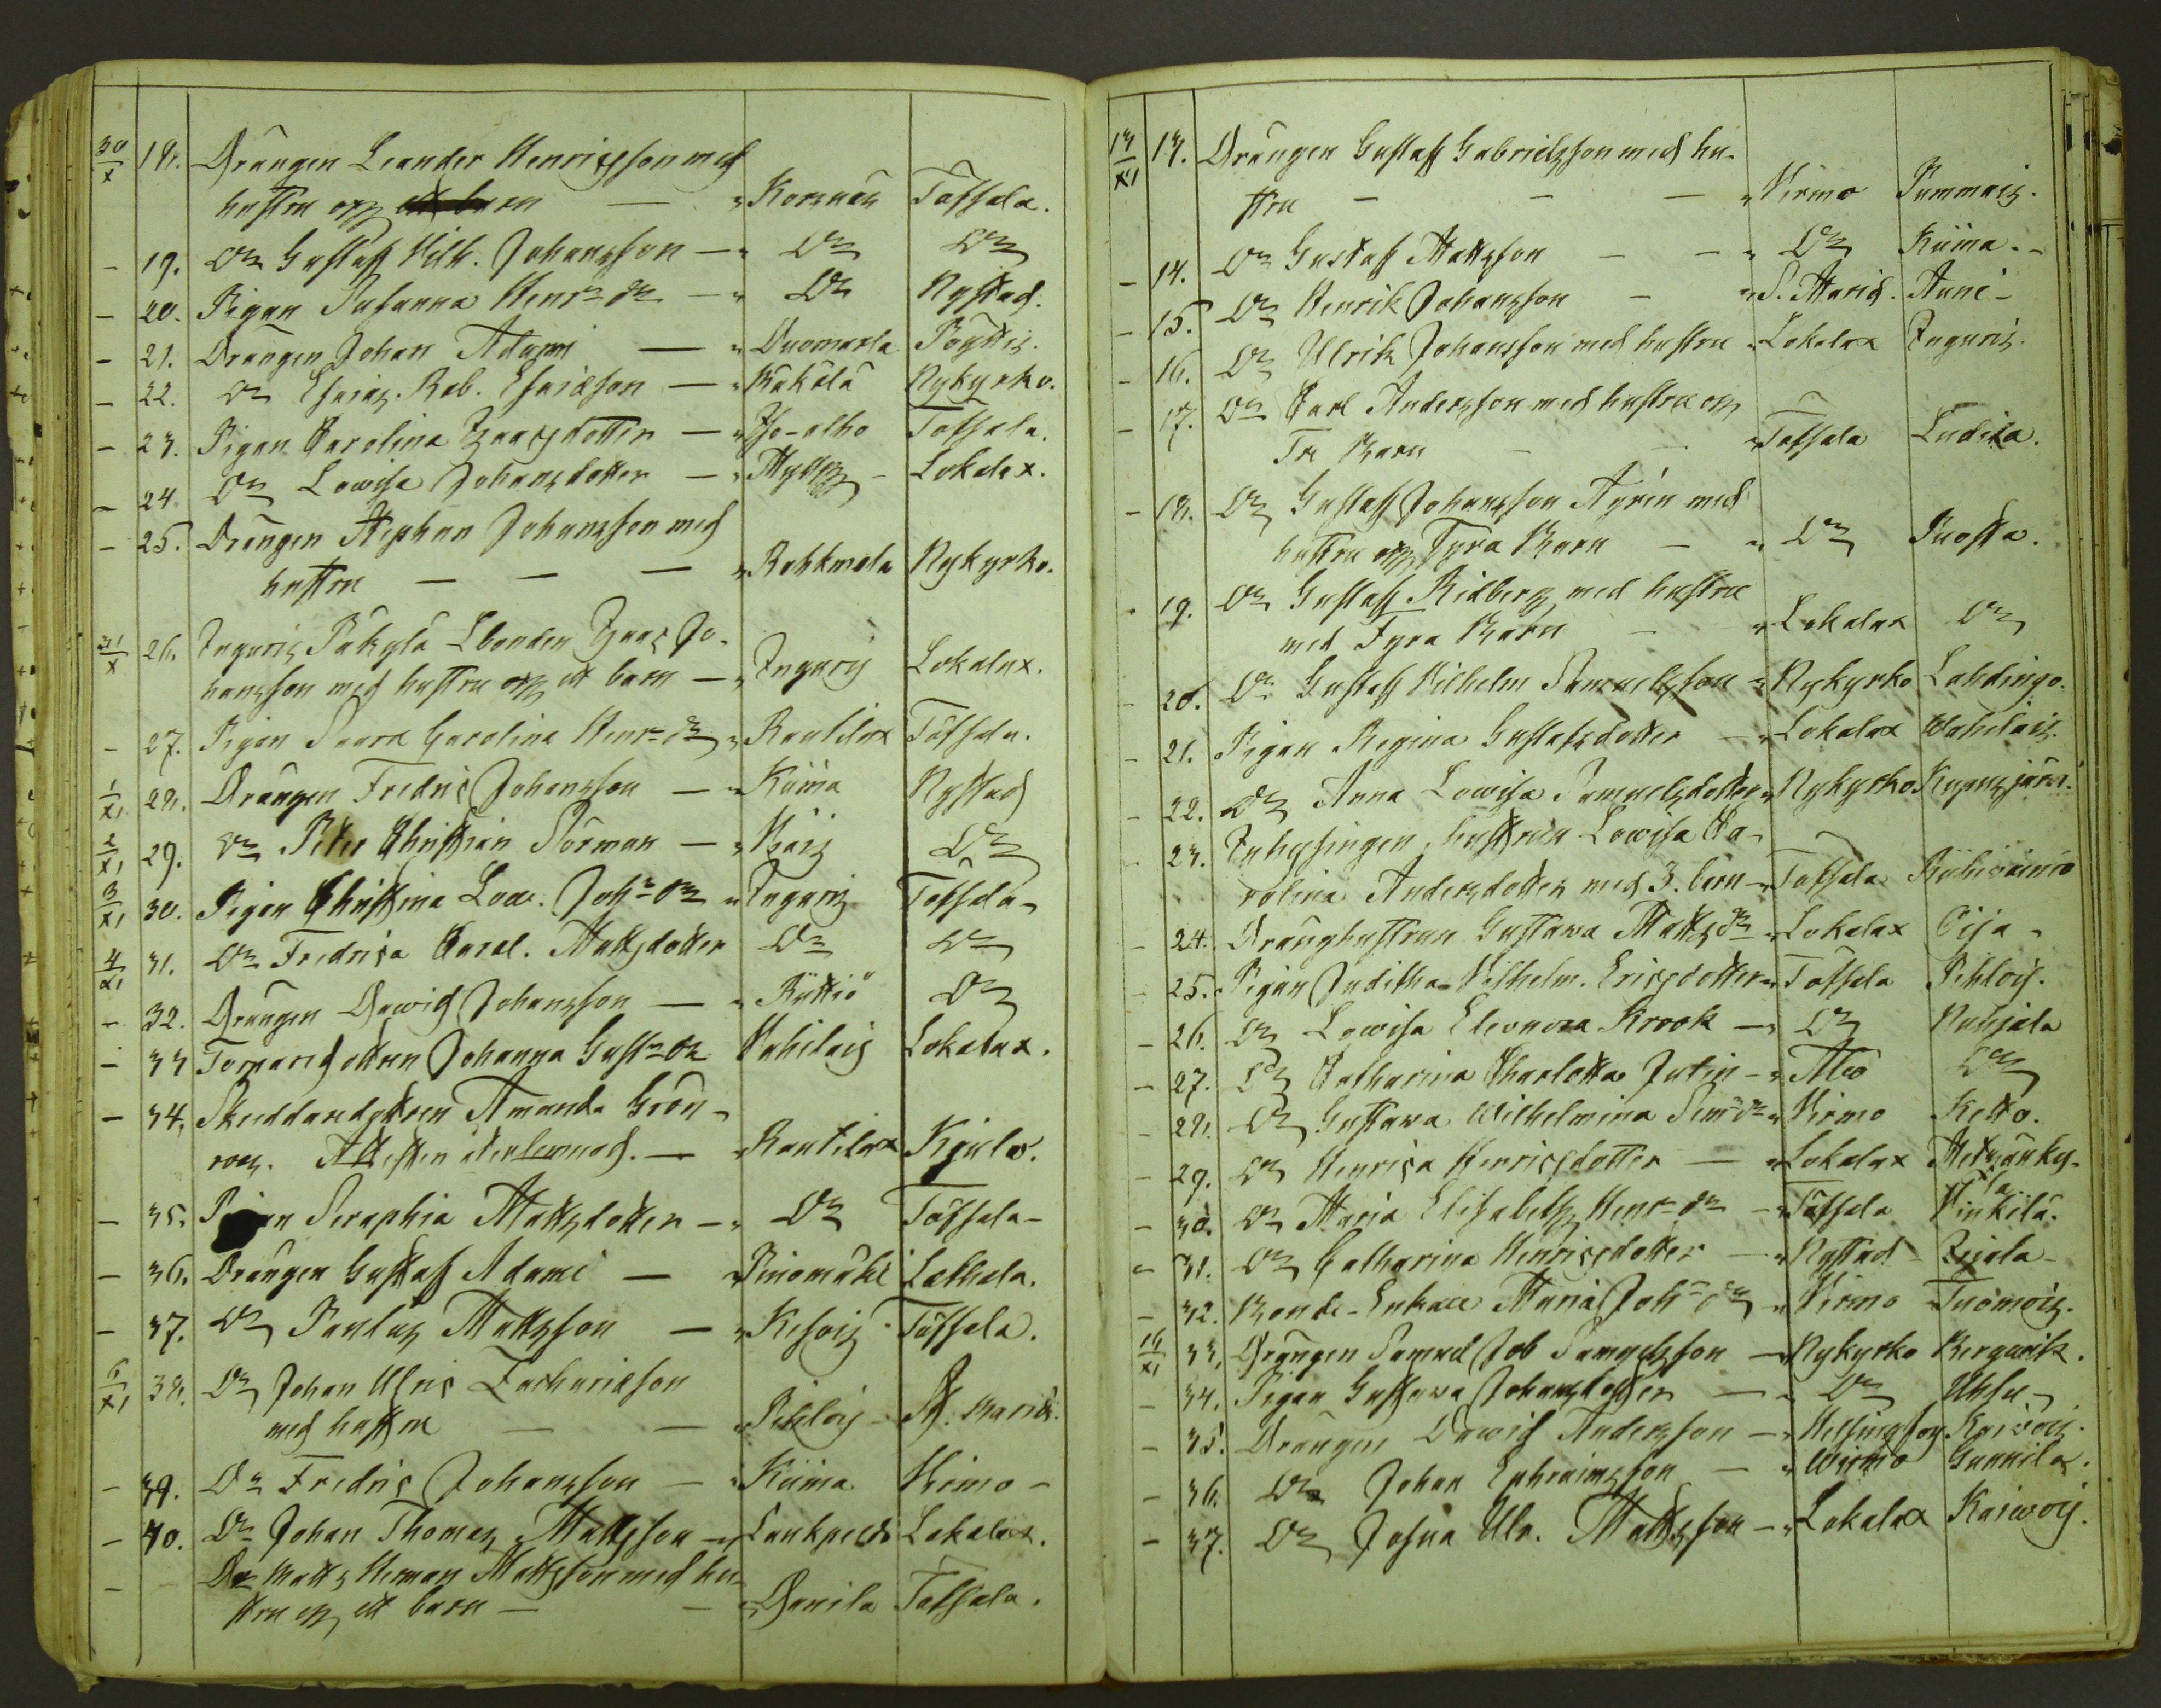 30/X 18. Drängen Leander Henricsson med
hustru och ett barn — " Korsnäs Töfsala.
— 19. Do Gustaf Wilh. Johansson — " Do Do
— 20. Pigan Susanna Henrsdr — " Do Nystad.
— 21. Drängen Johan Adami — " Pöytis.
— 22. Do Esaias Rob. Esaiasson — " Nykyrko.
— 23. Pigan Carolina Isaacsdotter — " Iso-alho Töfsala.
— 24. Do Lowisa Johansdotter — " Lokalax.
— 25. Drängen Stephan Johansson med
hustru — — — " Rohkmala Nykyrko.
31/X 26. Ingeris Päkylä Ebonden Isaac Jo-
hansson med hustru och ett barn — " Ingeris Lokalax.
— 27. Pigan Saara Carolina Henrsdr " Rautila Töfsala.
1/XI 28. Drängen Fredric Johansson — " Kiima Nystad
2/XI 29. Do Peter Christian Sörman — " Do
3/XI 30. Pigan Christina Low. Johsdr " Ingeris Töfsala —
4/XI 31. Do Fredrica Carol. Mattsdotter Do Do
— 32. Drängen Dawid Johansson — " Do
— 33 Johanna Gustdr Wahilais Lokalax.
— 34. Amanda Grön-
roos. Attesten återlemnad. — " Rautila Kjulo.
— 35. Pigan Seraphia Mattsdotter — " Do Töfsala —
— 36. Drängen Gustaf Adami — " Pinomäki Letala.
— 37. Do Paulus Mattsson — " Töfsala.
6/XI 38. Do Johan Ulric Zachariasson
med hustru — — " Pehlois — St. Marie.
— 39. Do Fredric Johansson — " Kiima Virmo —
— 40. Do Johan Thomas Mattsson — " Laukpelto Lokalax.
— Do Matts Herman Mattsson med hu-
stru och ett barn — — " Danila Töfsala.
13/XI 13. Drängen Gustaf Gabrielsson med hu-
stru — — — " Virmo Pummais.
— 14. Do Gustaf Mattsson — — " Do Kiima. —
— 15. Do Henrik Johansson — " S. Marie. Auni —
— 16. Do Ulrik Johansson med hustru " Lokalax Ingeris.
— 17. Do Carl Andersson med hustru och
Tre Barn — — " Töfsala Ludika.
— 18. Do Gustaf Johansson Ayrén med
hustru och Fyra Barn — " Do Puosta.
— 19. Do Gustaf Ridberg med hustru
med Fyra Barn — " Lokalax Do
— 20. Do Gustaf Wilhelm Samuelsson " Nykyrko Lahdingo.
— 21. Pigan Regina Gustafsdotter — " Lokalax Wahilais.
— 22. Do Anna Lowisa Samuelsdotter " Nykyrko
— 23. Inhysingen, hustrun Lowisa Ca-
rolina Andersdotter med 3. barn — " Töfsala
— 24. Dränghustrun Gustawa Mattsdr " Lokalax Oija —
— 25. Pigan Juditha Wilhelm. Ericsdotter " Töfsala Pehlois.
— 26. Do Lowisa Eleonora Krook — " Do Nuhjala
— 27. Do Catharina Charlotta Jutin — " Åbo Do
— 28. Do Gustawa Wilhelmina Simsdr " Virmo Ketto.
— 29. Do Henrica Henricsdotter — " Lokalax Metsänky-
lä
— 30. Do Maria Elisabeth Henrsdr — " Töfsala Vinkilä.
— 31. Do Catharina Henricsdotter — " Nystad —
— 32. Bonde-Enkan Maria Johsdr " Virmo Tuomois.
14/XI 33. Drängen Samuel Job Samuelsson — " Nykyrko Bergwik.
— 34. Pigan Gustawa Johansdotter — " Do
— 35. Drängen Dawid Andersson — " Helsingfors Kaiwois.
— 36. Do Johan Ephraimsson — " Wirmo Gunnila.
— 37. Do Josua Ulr. Mattsson — " Lokalax Kaiwois.